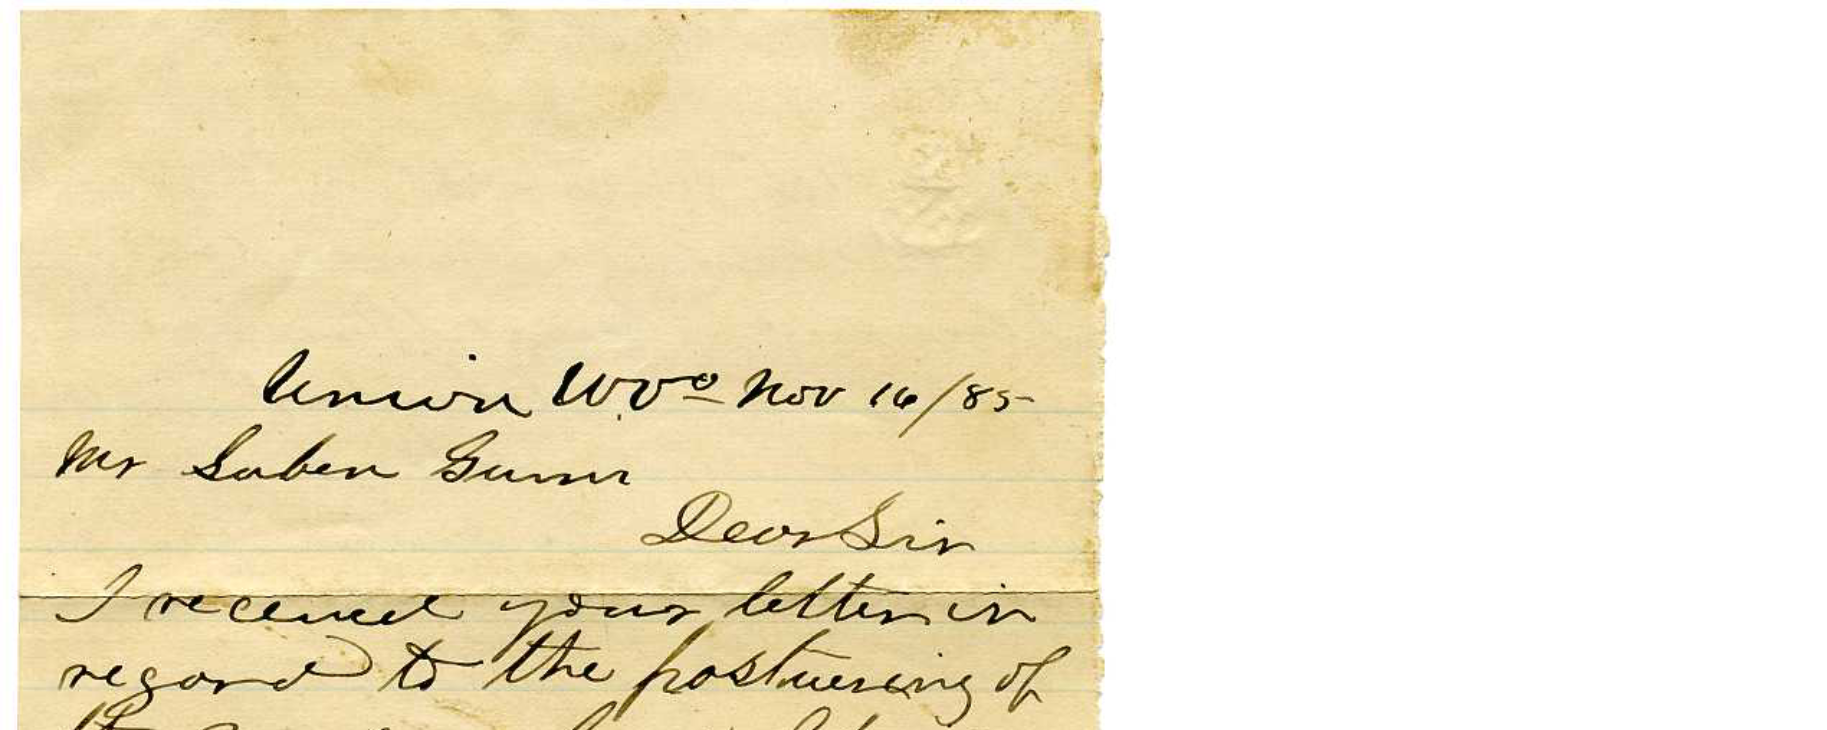 Union W.Va Nov 16/85
Mr Saben Gunn
Dear Sir
I received your letter in
regard to the pastuering of